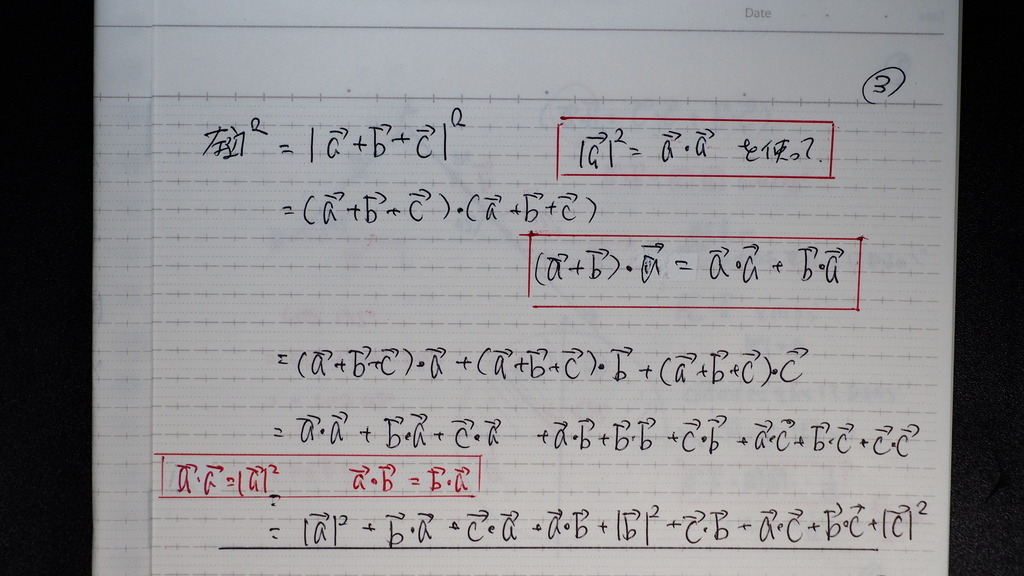 Date
③
左辺² = |a⃗+b⃗+c⃗|²
|a⃗|² = a⃗・a⃗ を使って.
= (a⃗+b⃗+c⃗)・(a⃗+b⃗+c⃗)
(a⃗+b⃗)・a⃗ = a⃗・a⃗ + b⃗・a⃗
= (a⃗+b⃗+c⃗)・a⃗ + (a⃗+b⃗+c⃗)・b⃗ + (a⃗+b⃗+c⃗)・c⃗
= a⃗・a⃗ + b⃗・a⃗ + c⃗・a⃗ + a⃗・b⃗ + b⃗・b⃗ + c⃗・b⃗ + a⃗・c⃗ + b⃗・c⃗ + c⃗・c⃗
a⃗・a⃗ = |a⃗|² a⃗・b⃗ = b⃗・a⃗
= |a⃗|² + b⃗・a⃗ + c⃗・a⃗ + a⃗・b⃗ + |b⃗|² + c⃗・b⃗ + a⃗・c⃗ + b⃗・c⃗ + |c⃗|²